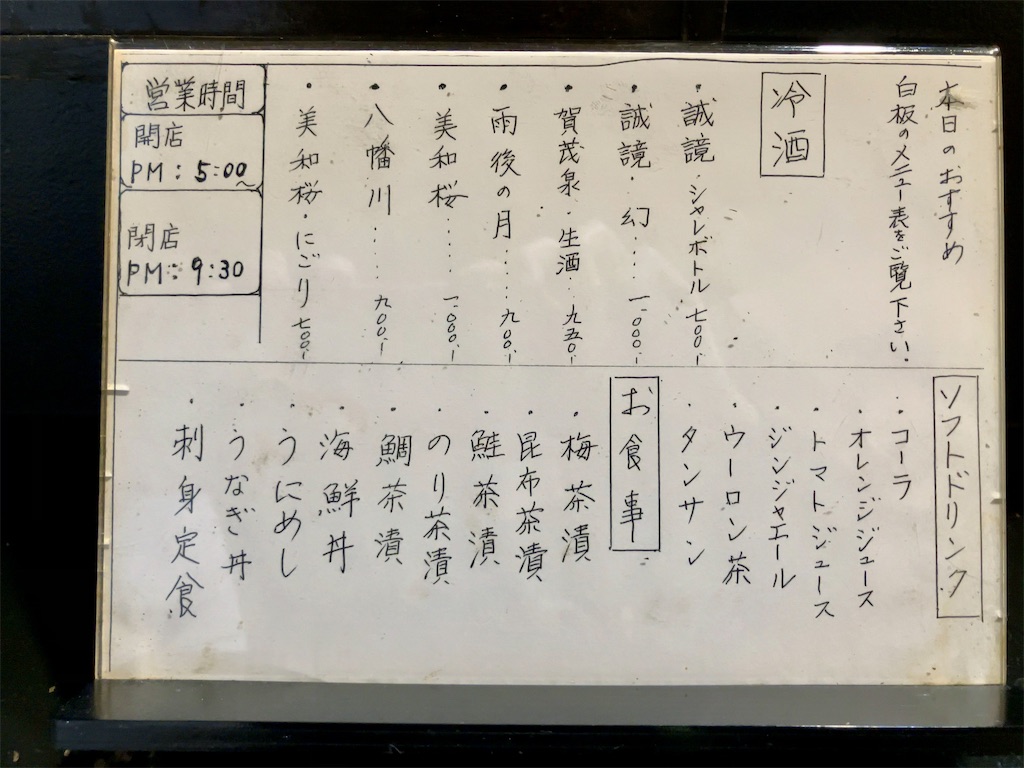 本日のおすすめ
白板のメニュー表をご覧下さい.
冷酒
・誠鏡・シャレボトル 七〇〇.-
・誠鏡・幻......一、〇〇〇.-
・賀茂泉・生酒...九五〇.-
・雨後の月......九〇〇.-
・美和桜......一、〇〇〇.-
・八幡川......九〇〇.-
・美和桜・にごり 七〇〇.-
営業時間
開店
PM:5:00~
閉店
PM:9:30
ソフトドリンク
・コーラ
・オレンジジュース
・トマトジュース
・ジンジャエール
・ウーロン茶
・タンサン
お食事
・梅茶漬
・昆布茶漬
・鮭茶漬
・のり茶漬
・鯛茶漬
・海鮮丼
・うにめし
・うなぎ丼
・刺身定食